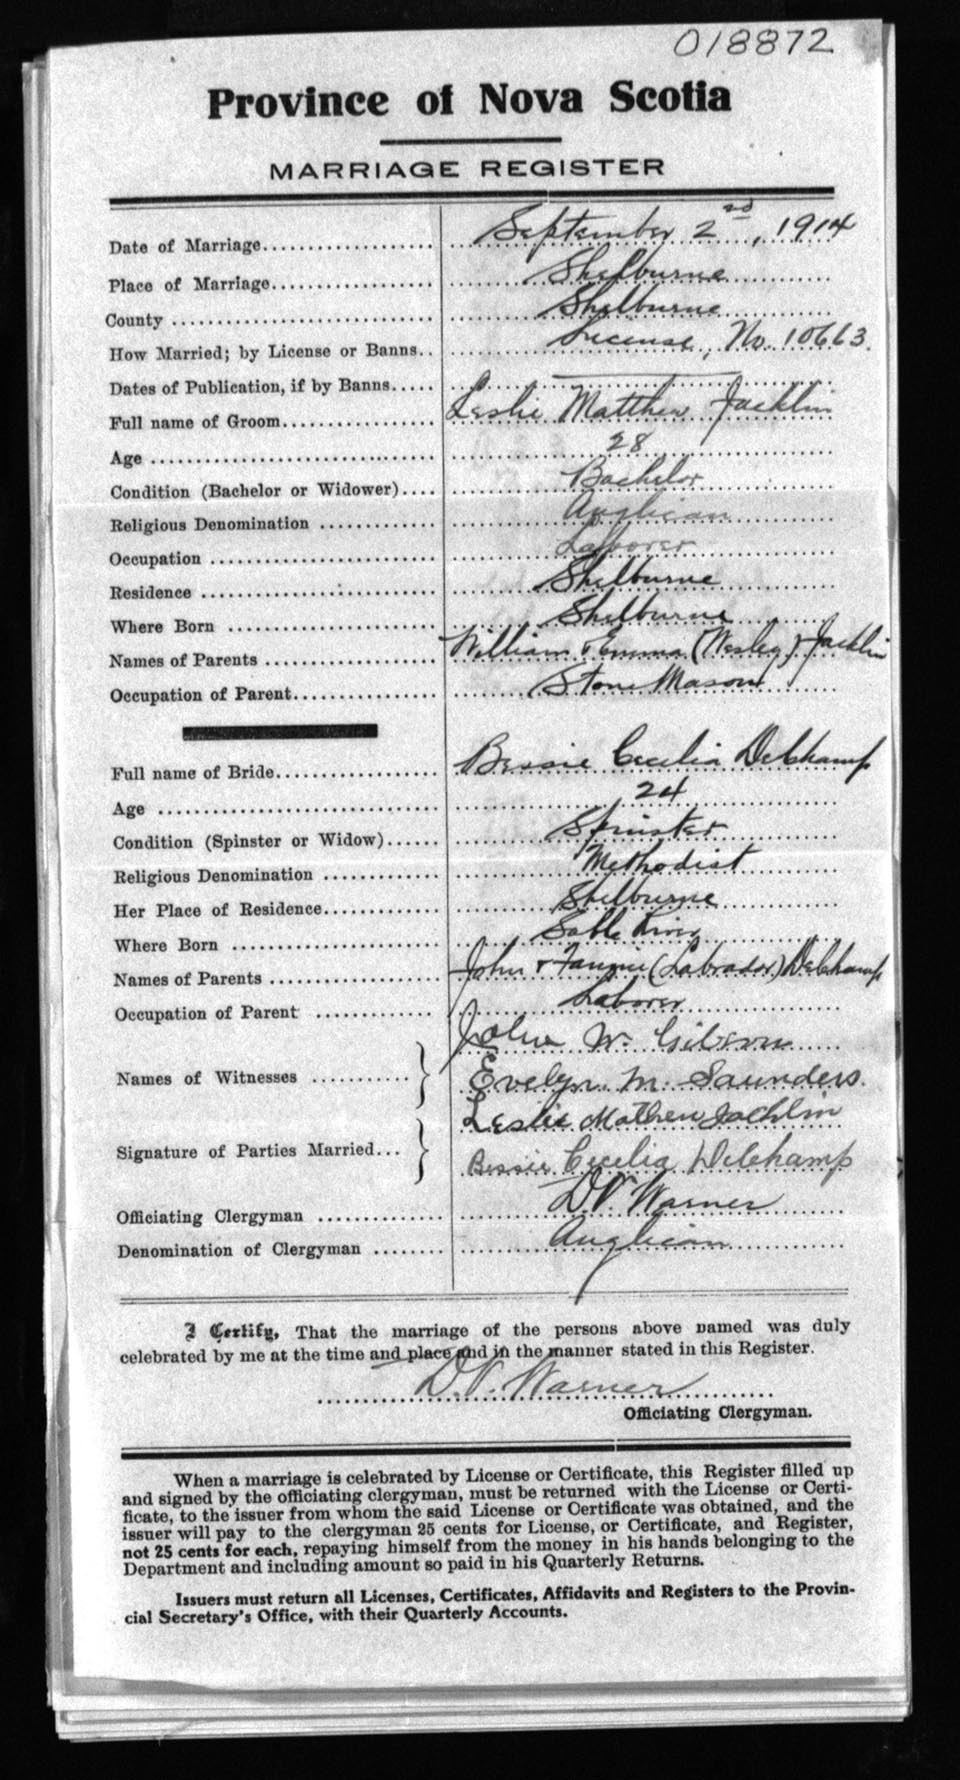 018872
Province of Nova Scotia
MARRIAGE REGISTER
Date of Marriage.................... September 2nd, 1914
Place of Marriage................... Shelburne
County ............................. Shelburne
How Married; by License or Banns.. License, No. 10663.
Dates of Publication, if by Banns..... ———
Full name of Groom.................. Leslie Matthew Jacklin
Age ................................ 28
Condition (Bachelor or Widower).... Bachelor
Religious Denomination ............. Anglican
Occupation ......................... Laborer
Residence .......................... Shelburne
Where Born ......................... Shelburne
Names of Parents ................... William & Emma (Wesley) Jacklin
Occupation of Parent................ Stone Mason
Full name of Bride.................. Bessie Cecilia Delchamp
Age ................................ 24
Condition (Spinster or Widow)...... Spinster
Religious Denomination ............. Methodist
Her Place of Residence............. Shelburne
Where Born ......................... Sable River
Names of Parents ................... John & Fannie (Labrador) Delchamp
Occupation of Parent ............... Laborer
Names of Witnesses ............ } John W. Gibson
Evelyn M. Saunders.
Signature of Parties Married... } Leslie Mathew Jacklin
Bessie Cecelia Delchamp
Officiating Clergyman .............. D.V. Warner
Denomination of Clergyman ........ Anglican
I Certify, That the marriage of the persons above named was duly
celebrated by me at the time and place and in the manner stated in this Register.
D.V. Warner
Officiating Clergyman.
When a marriage is celebrated by License or Certificate, this Register filled up
and signed by the officiating clergyman, must be returned with the License or Certi-
ficate, to the issuer from whom the said License or Certificate was obtained, and the
issuer will pay to the clergyman 25 cents for License, or Certificate, and Register,
not 25 cents for each, repaying himself from the money in his hands belonging to the
Department and including amount so paid in his Quarterly Returns.
Issuers must return all Licenses, Certificates, Affidavits and Registers to the Provin-
cial Secretary's Office, with their Quarterly Accounts.